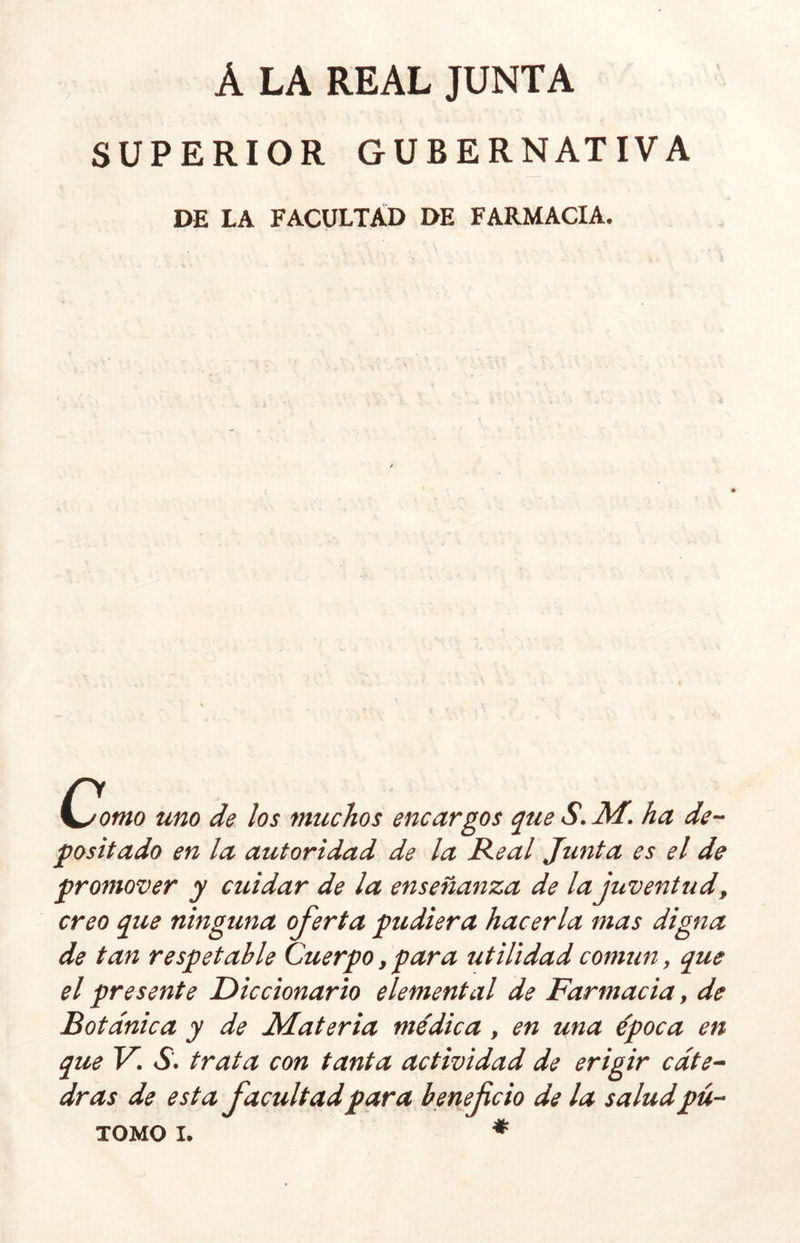 Á LA REAL JUNTA
SUPERIOR GUBERNATIVA
DE LA FACULTAD DE FARMACIA.
Como uno de los muchos encargos que S. M. ha de-
positado en la autoridad de la Real Junta es el de
promover y cuidar de la enseñanza de la juventud,
creo que ninguna oferta pudiera hacerla mas digna
de tan respetable Cuerpo, para utilidad comun, que
el presente Diccionario elemental de Farmacia, de
Botánica y de Materia médica, en una época en
que V. S. trata con tanta actividad de erigir cáte-
dras de esta facultad para beneficio de la salud pú-
TOMO I. *